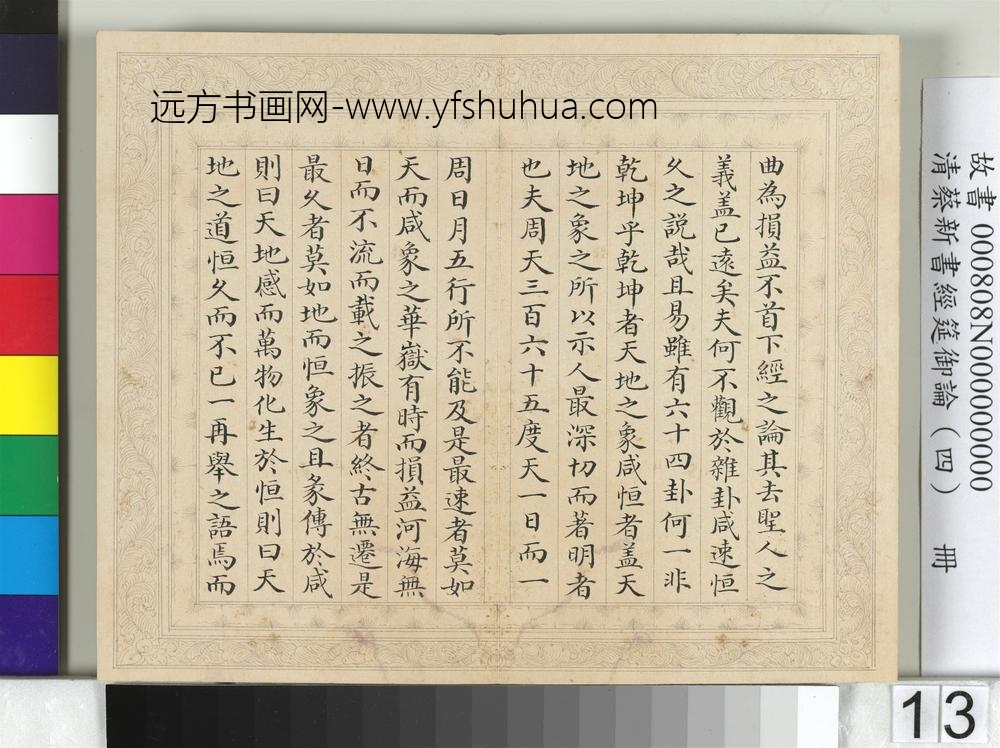 远方书画网-www.yfshuhua.com
曲為損益不首下經之論其去聖人之
義盖已遠矣夫何不觀於雜卦咸速恒
久之説哉且易雖有六十四卦何一非
乾坤乎乾坤者天地之象咸恒者盖天
地之象之所以示人最深切而著明者
也夫周天三百六十五度天一日而一
周日月五行所不能及是最速者莫如
天而咸象之華嶽有時而損益河海無
日而不流而載之振之者終古無遷是
最久者莫如地而恒象之且彖傳於咸
則曰天地感而萬物化生於恒則曰天
地之道恒久而不已一再舉之語焉而
故書 000808N000000000
清蔡新書經筵御論（四） 冊
13